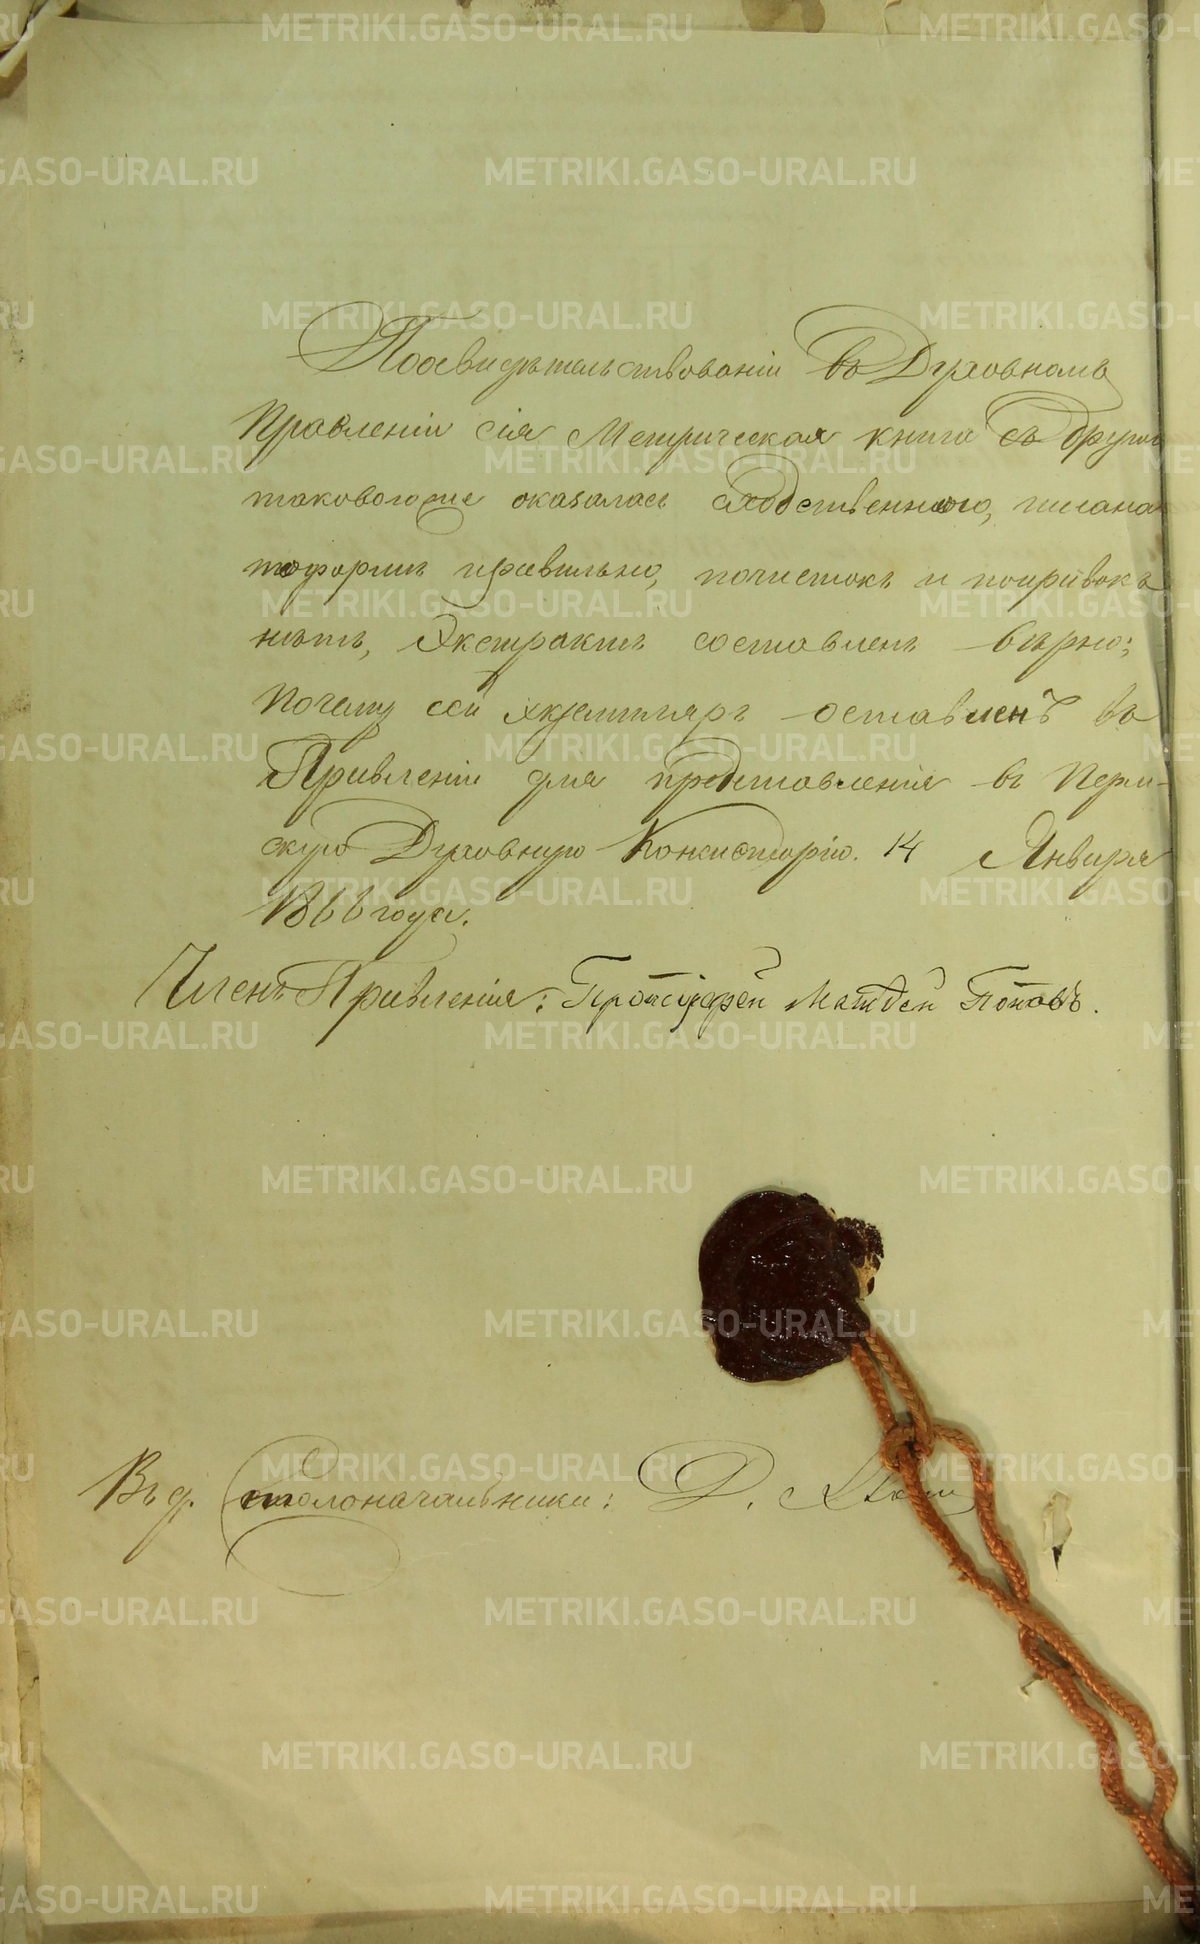 Поосвидѣтельствованіи въ Духовномъ
Правленіи сія Метрическая книга съ другой
таковоюже оказалась сходственною, писана
поформѣ правильно, почистокъ и поправокъ
нѣтъ, Экстрактъ составленъ вѣрно;
Почему сей экземпляръ оставленъ въ
Правленіи для представленія въ Перм-
скую Духовную Консисторію. 14 Января
1866 года.
Членъ Правленія: Протоіерей Матвей Поповъ.
Въ д. столоначальника: Д.